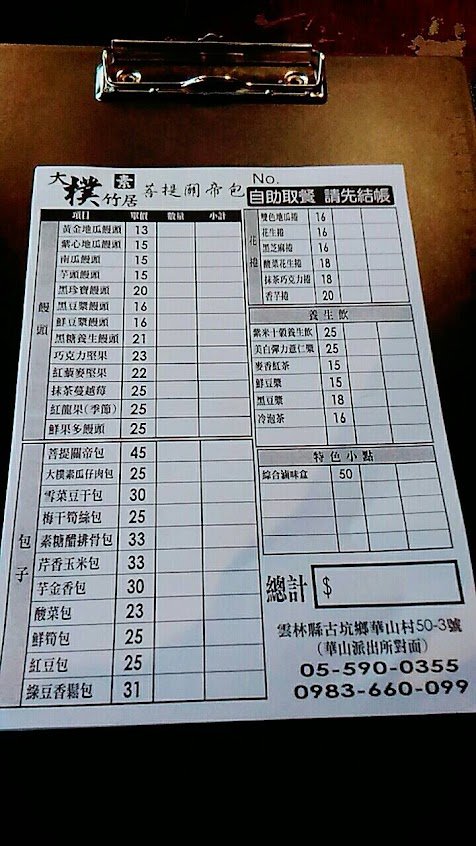 大樸竹居 素 菩提關帝包
No.
自助取餐 請先結帳
項目 單價 數量 小計
饅頭
黃金地瓜饅頭 13
紫心地瓜饅頭 15
南瓜饅頭 15
芋頭饅頭 15
黑珍寶饅頭 20
黑豆漿饅頭 16
鮮豆漿饅頭 16
黑糖養生饅頭 21
巧克力堅果 23
紅藜麥堅果 22
抹茶蔓越莓 25
紅龍果(季節) 25
鮮果多饅頭 25
包子
菩提關帝包 45
大樸素瓜仔肉包 25
雪菜豆干包 30
梅干筍絲包 25
素糖醋排骨包 33
芹香玉米包 33
芋金香包 30
酸菜包 23
鮮筍包 25
紅豆包 25
綠豆香鬆包 31
花捲
雙色地瓜捲 16
花生捲 16
黑芝麻捲 16
酸菜花生捲 18
抹茶巧克力捲 18
香芋捲 20
養生飲
紫米十穀養生飲 25
美白彈力薏仁漿 25
麥香紅茶 15
鮮豆漿 15
黑豆漿 18
冷泡茶 16
特色小點
綜合滷味盒 50
總計 $
雲林縣古坑鄉華山村50-3號
(華山派出所對面)
05-590-0355
0983-660-099